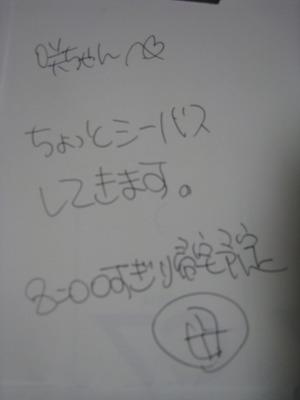 咲ちゃんへ♡
ちょっとシーバス
してきます。
8:00すぎり帰宅予定
母